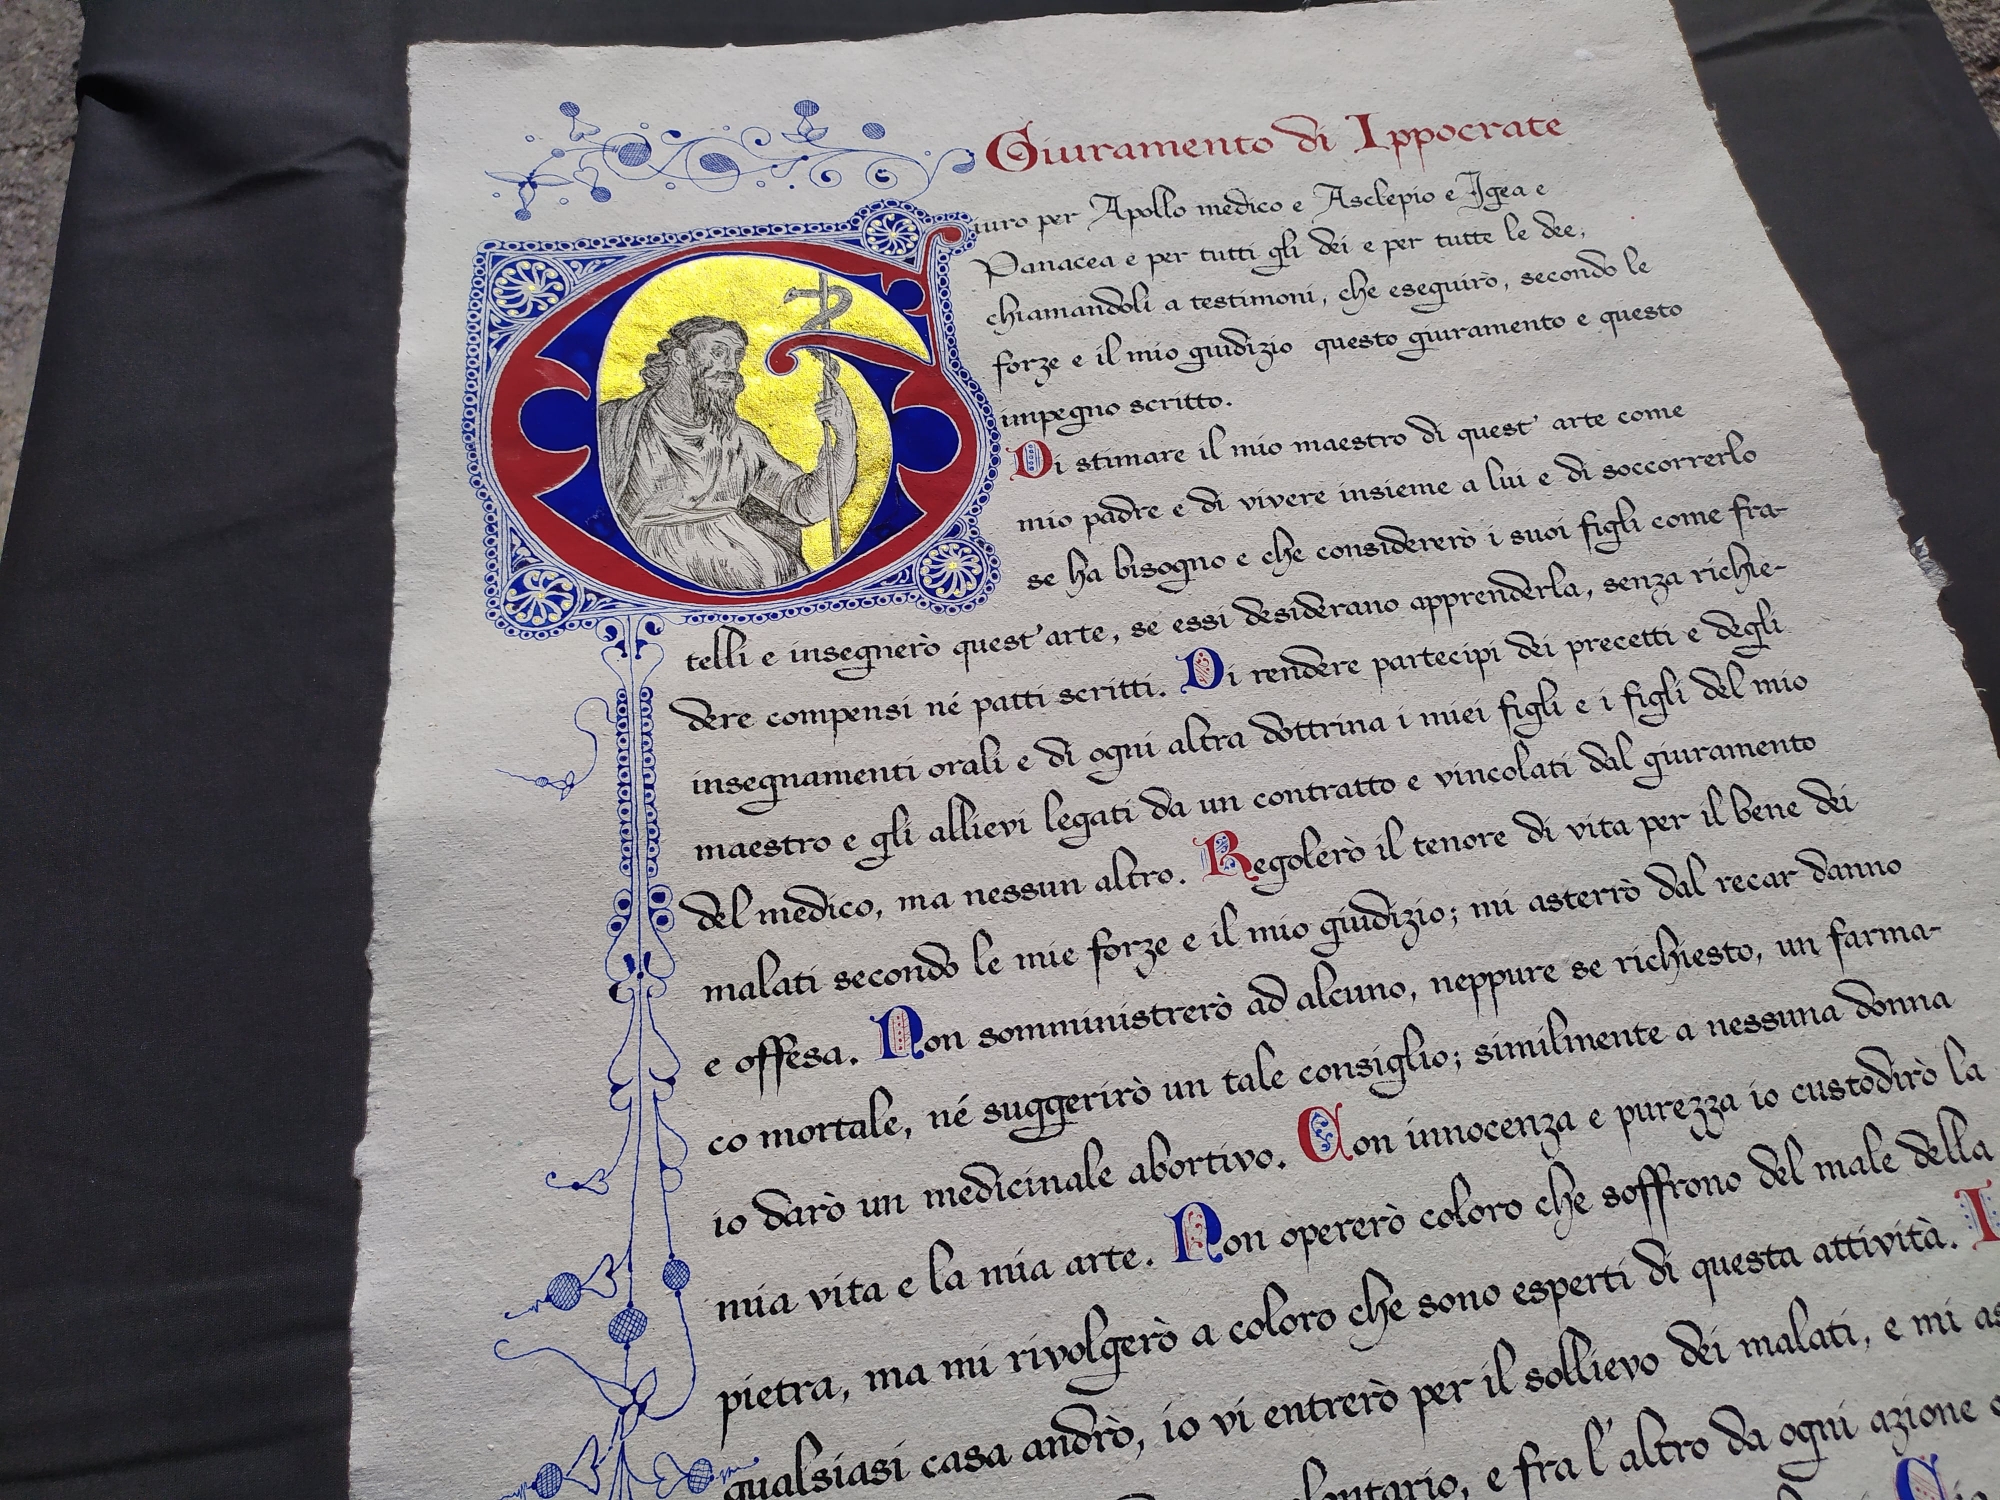 Giuramento di Ippocrate
Giuro per Apollo medico e Asclepio e Igea e
Panacea e per tutti gli dei e per tutte le dee,
chiamandoli a testimoni, che eseguirò, secondo le
forze e il mio giudizio questo giuramento e questo
impegno scritto.
Di stimare il mio maestro di quest' arte come
mio padre e di vivere insieme a lui e di soccorrerlo
se ha bisogno e che considererò i suoi figli come fra-
telli e insegnerò quest'arte, se essi desiderano apprenderla, senza richie-
dere compensi né patti scritti. Di rendere partecipi dei precetti e degli
insegnamenti orali e di ogni altra dottrina i miei figli e i figli del mio
maestro e gli allievi legati da un contratto e vincolati dal giuramento
del medico, ma nessun altro. Regolerò il tenore di vita per il bene dei
malati secondo le mie forze e il mio giudizio; mi asterrò dal recar danno
e offesa. Non somministrerò ad alcuno, neppure se richiesto, un farma-
co mortale, né suggerirò un tale consiglio; similmente a nessuna donna
io darò un medicinale abortivo. Con innocenza e purezza io custodirò la
mia vita e la mia arte. Non opererò coloro che soffrono del male della
pietra, ma mi rivolgerò a coloro che sono esperti di questa attività. I
qualsiasi casa andrò, io vi entrerò per il sollievo dei malati, e mi as
e fra l'altro da ogni azione